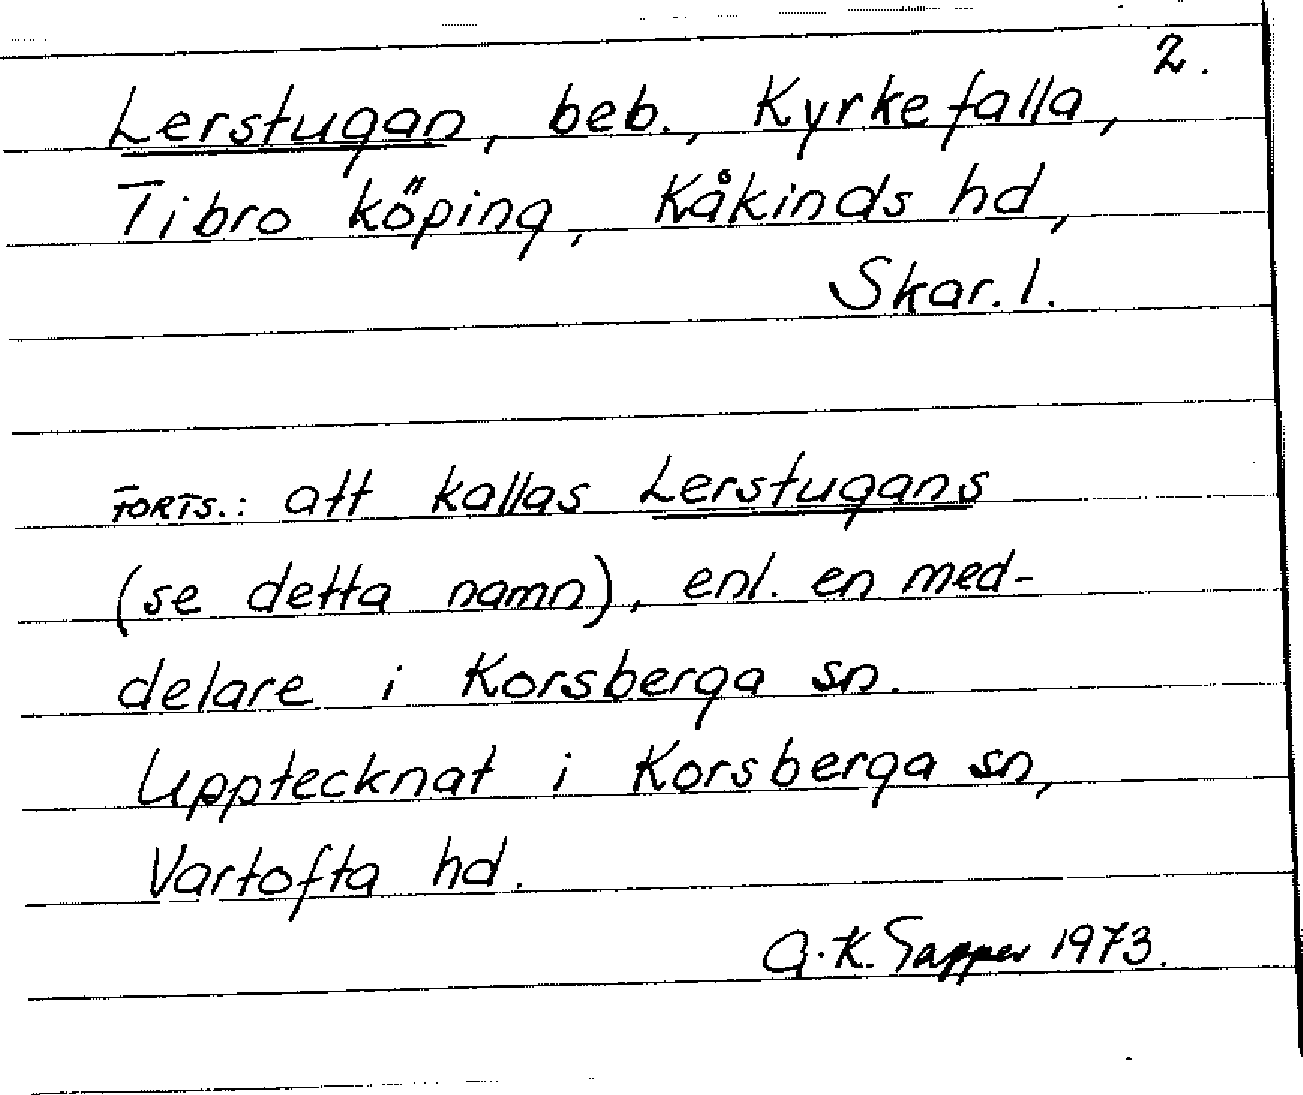 2.
Lerstugan, beb., Kyrkefalla,
Tibro köping, Kåkinds hd,
Skar. l.
FORTS.: att kallas Lerstugans
(se detta namn), enl. en med-
delare i Korsberga sn.
Upptecknat i Korsberga sn,
Vartofta hd.
G.K. Sapper 1973.